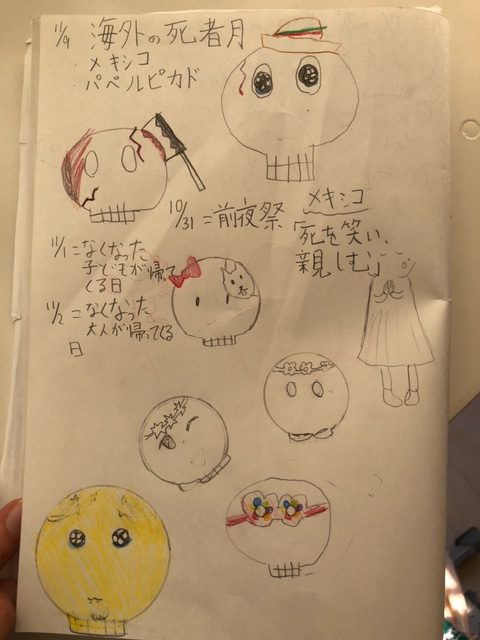 11/9 海外の死者月
メキシコ
パペルピカド
10/31=前夜祭
11/1=なくなった
子どもが帰って
くる日
11/2=なくなった
大人が帰ってくる
日
メキシコ
「死を笑い、
親しむ」